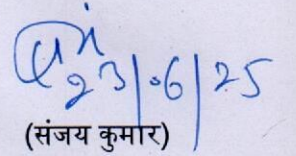 23/06/25
(संजय कुमार)